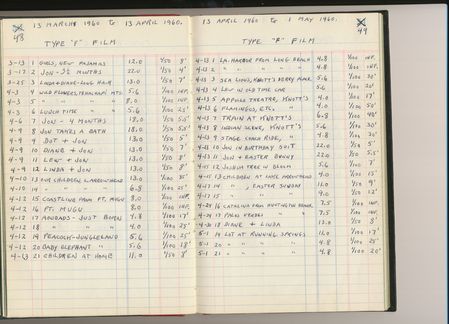 48
13 MARCH 1960 to 13 APRIL 1960.
TYPE "F" FILM
3-13 1 GIRLS, NEW PAJAMAS 12.0 1/50 8'
3-17 2 JON - 3½ MONTHS 22.0 1/50 4'
3-25 3 LINDA + DIANE - LONG HAIR 13.0 1/50 5.5'
4-3 4 WILD FLOWERS, TEHACHAPI MTS. 5.6 1/100 INF.
4-3 5 " " " 8.0 1/100 INF.
4-3 6 LUNCH TIME 5.6 1/100 25'
4-9 7 JON - 4 MONTHS 18.0 1/50 5.5'
4-9 8 JON TAKES A BATH 18.0 1/50 5.5'
4-9 9 DOT + JON 13.0 1/50 5'
4-9 10 DIANE + JON 13.0 1/50 7'
4-9 11 LEW + JON 13.0 1/50 8'
4-9 12 LINDA + JON 13.0 1/50 8'
4-10 13 CHILDREN @ LAKE ARROWHEAD 13.0 1/100 35'
4-10 14 " " 6.8 1/100 25'
4-12 15 COASTLINE FROM PT. MUGU 8.0 1/100 INF.
4-12 16 PT. MUGU 8.0 1/100 INF.
4-12 17 AOUDADS - JUST BORN 4.8 1/100 17'
4-12 18 " " 4.0 1/100 25'
4-12 19 PEACOCK - JUNGLELAND 5.6 1/100 25'
4-12 20 BABY ELEPHANT " 5.6 1/100 18'
4-13 21 CHILDREN AT HOME 11.0 1/50 8'
49
13 APRIL 1960 to 1 MAY 1960.
TYPE "F" FILM
4-13 1 LA HARBOR FROM LONG BEACH 4.8 1/100 INF.
4-13 2 " " " " 4.8 1/100 INF.
4-13 3 SEA LIONS, KNOTT'S BERRY PLACE 5.6 1/100 30'
4-13 4 LEW IN OLD TIME CAR 5.6 1/100 20'
4-13 5 APPOLLO THEATER, KNOTT'S 4.0 1/100 17'
4-13 6 FLAMINGOS, ETC., " 4.0 1/100 50'
4-13 7 TRAIN AT KNOTT'S 6.8 1/100 40'
4-13 8 INDIAN SCENE, KNOTT'S 5.6 1/100 30'
4-13 9 STAGE COACH RIDE, " 4.8 1/100 30'
4-13 10 JON IN BIRTHDAY SUIT 22.0 1/50 5'
4-13 11 JON + EASTER BUNNY 22.0 1/50 5.5'
4-15 12 JOSHUA TREE IN BLOOM 5.6 1/100 7'
4-15 13 CHILDREN AT LAKE ARROWHEAD 4.0 1/100 15'
4-17 14 " , EASTER SUNDAY 11.0 1/50 9'
4-17 15 " " 9.0 1/50 12'
4-24 16 CATALINA FROM HUNTINGTON BEACH 7.5 1/100 INF.
4-24 17 PALOS VERDES " 7.5 1/100 INF.
4-30 18 DIANE + LINDA 13.0 1/50 8'
5-1 19 LOT AT RUNNING SPRINGS 11.0 1/100 17'
5-1 20 " " " " 4.8 1/100 25'
5-1 21 " " " " 4.8 1/100 20'